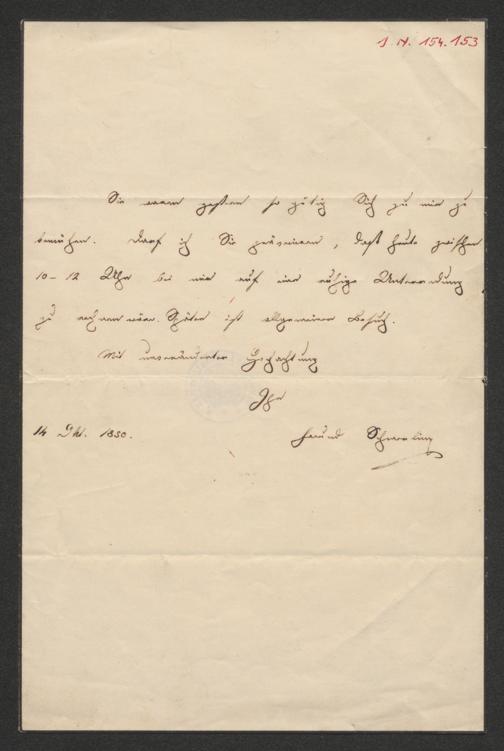 I. N. 154.153
Sie waren gestern so gütig Sich zu mir zu
bemühen. Darf ich Sie , daß heute zwischen
10 – 12 Uhr bei mir auf eine ruhige Unterredung
zu rechnen wäre. Später ist allgemeiner Besuch.
Mit unveränderter Hochachtung
Ihr
14 Okt. 1850. Freund